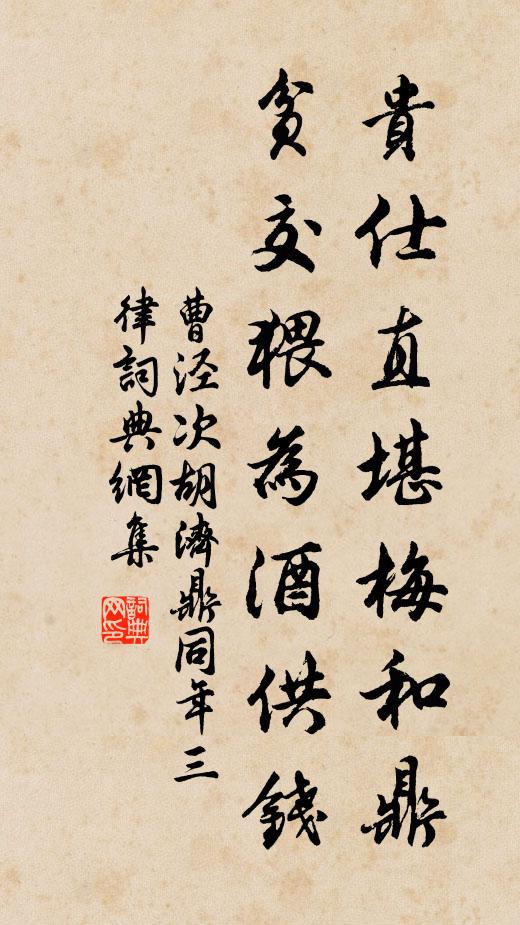 貴仕直堪梅和鼎
貧交猥為酒供錢
曹涇次胡濟鼎同年三
律詞典網集
詞典網印